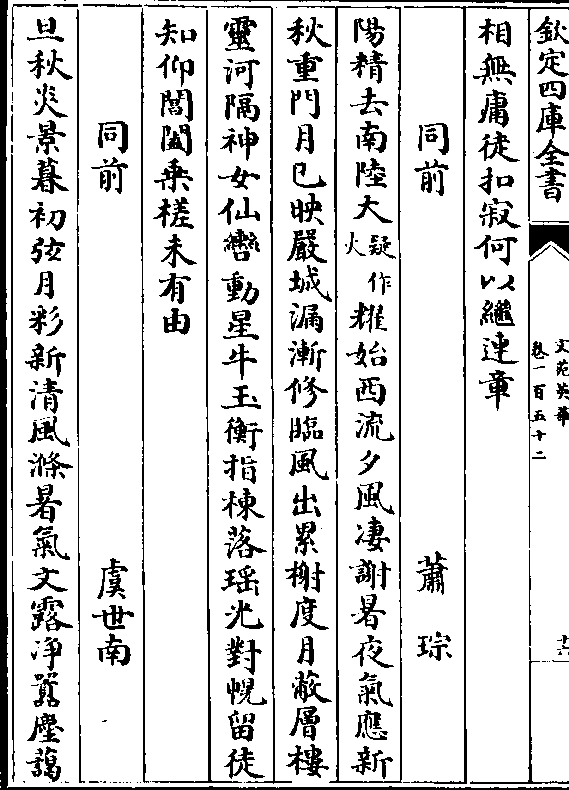 欽定四庫全書
文苑英華
卷一百五十二
十六
相無庸徒扣寂何以繼連章
同前 蕭琮
陽精去南陸大疑作火耀始西流夕風凄謝暑夜氣應新
秋重門月已映嚴城漏漸修臨風出累榭度月蔽層樓
靈河隔神女仙轡動星牛玉衡指棟落瑶光對幌留徒
知仰閶闔乗槎未有由
同前 虞世南
旦秋炎景暮初弦月彩新清風滌暑氣文露净囂塵薄